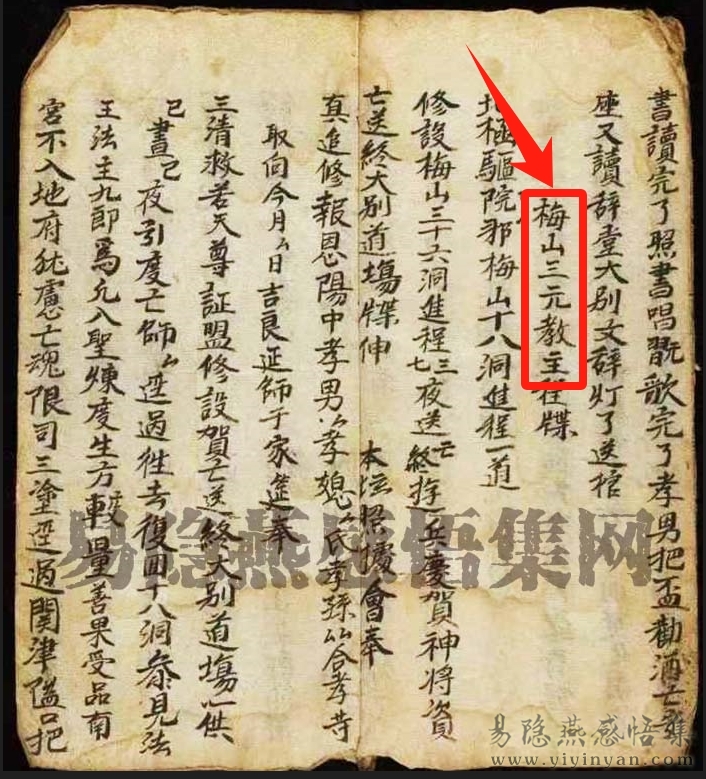 書讀完了照書唱歌完了孝男把盃勸酒亡
座又讀辞堂大別文辞灯了送棺
梅山三元教主程牒
北極驅院邪梅山十八洞進程一道
修設梅山三十六洞進程三七夜送亡終遊兵慶賀神將資
亡送終大別道場牒伸 本壇招擾會奉
真進修報恩陽中孝男厶孝媳厶氏孝孫厶合孝等
取向今月厶日吉良延師于家筵奉
三清救苦天尊証盟修設賀亡送終大別道場以供
已晝已夜引度亡師厶逕過徃去復回十八洞叅見法
王法主九郎為允八聖煉度生方較量善果受品南
宮不入地府犹慮亡魂限司三塗逕過関津隘口把
易隐燕感悟集网
易隐燕感悟集
www.yiyinyan.com